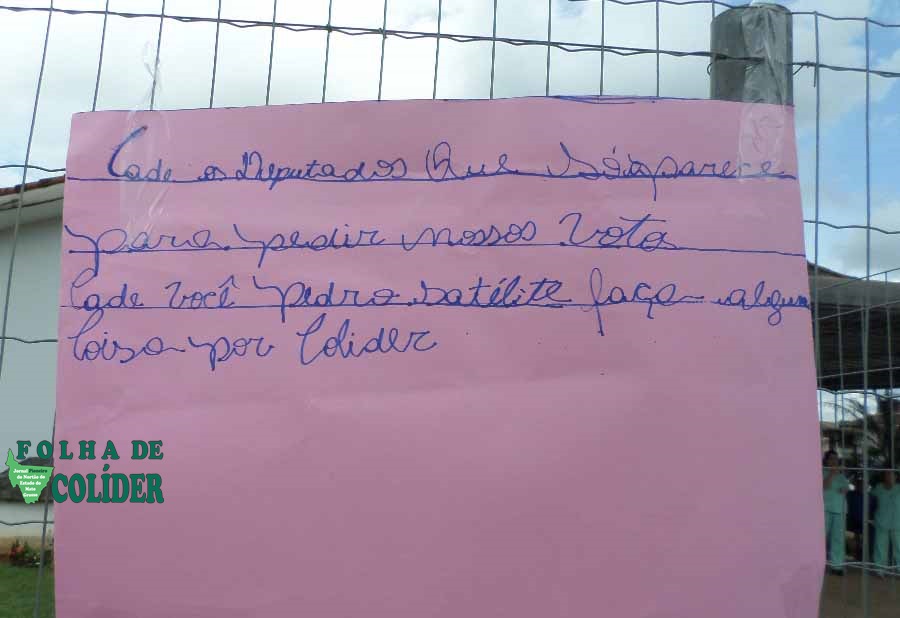 Cade os Deputados Que sóaparece
para pedir nossos Voto
Cade você pedro satélite faça alguma
Coisa por Colider
FOLHA DE
COLÍDER
Jornal Pioneiro
do Nortão do
Estado de
Mato
Grosso